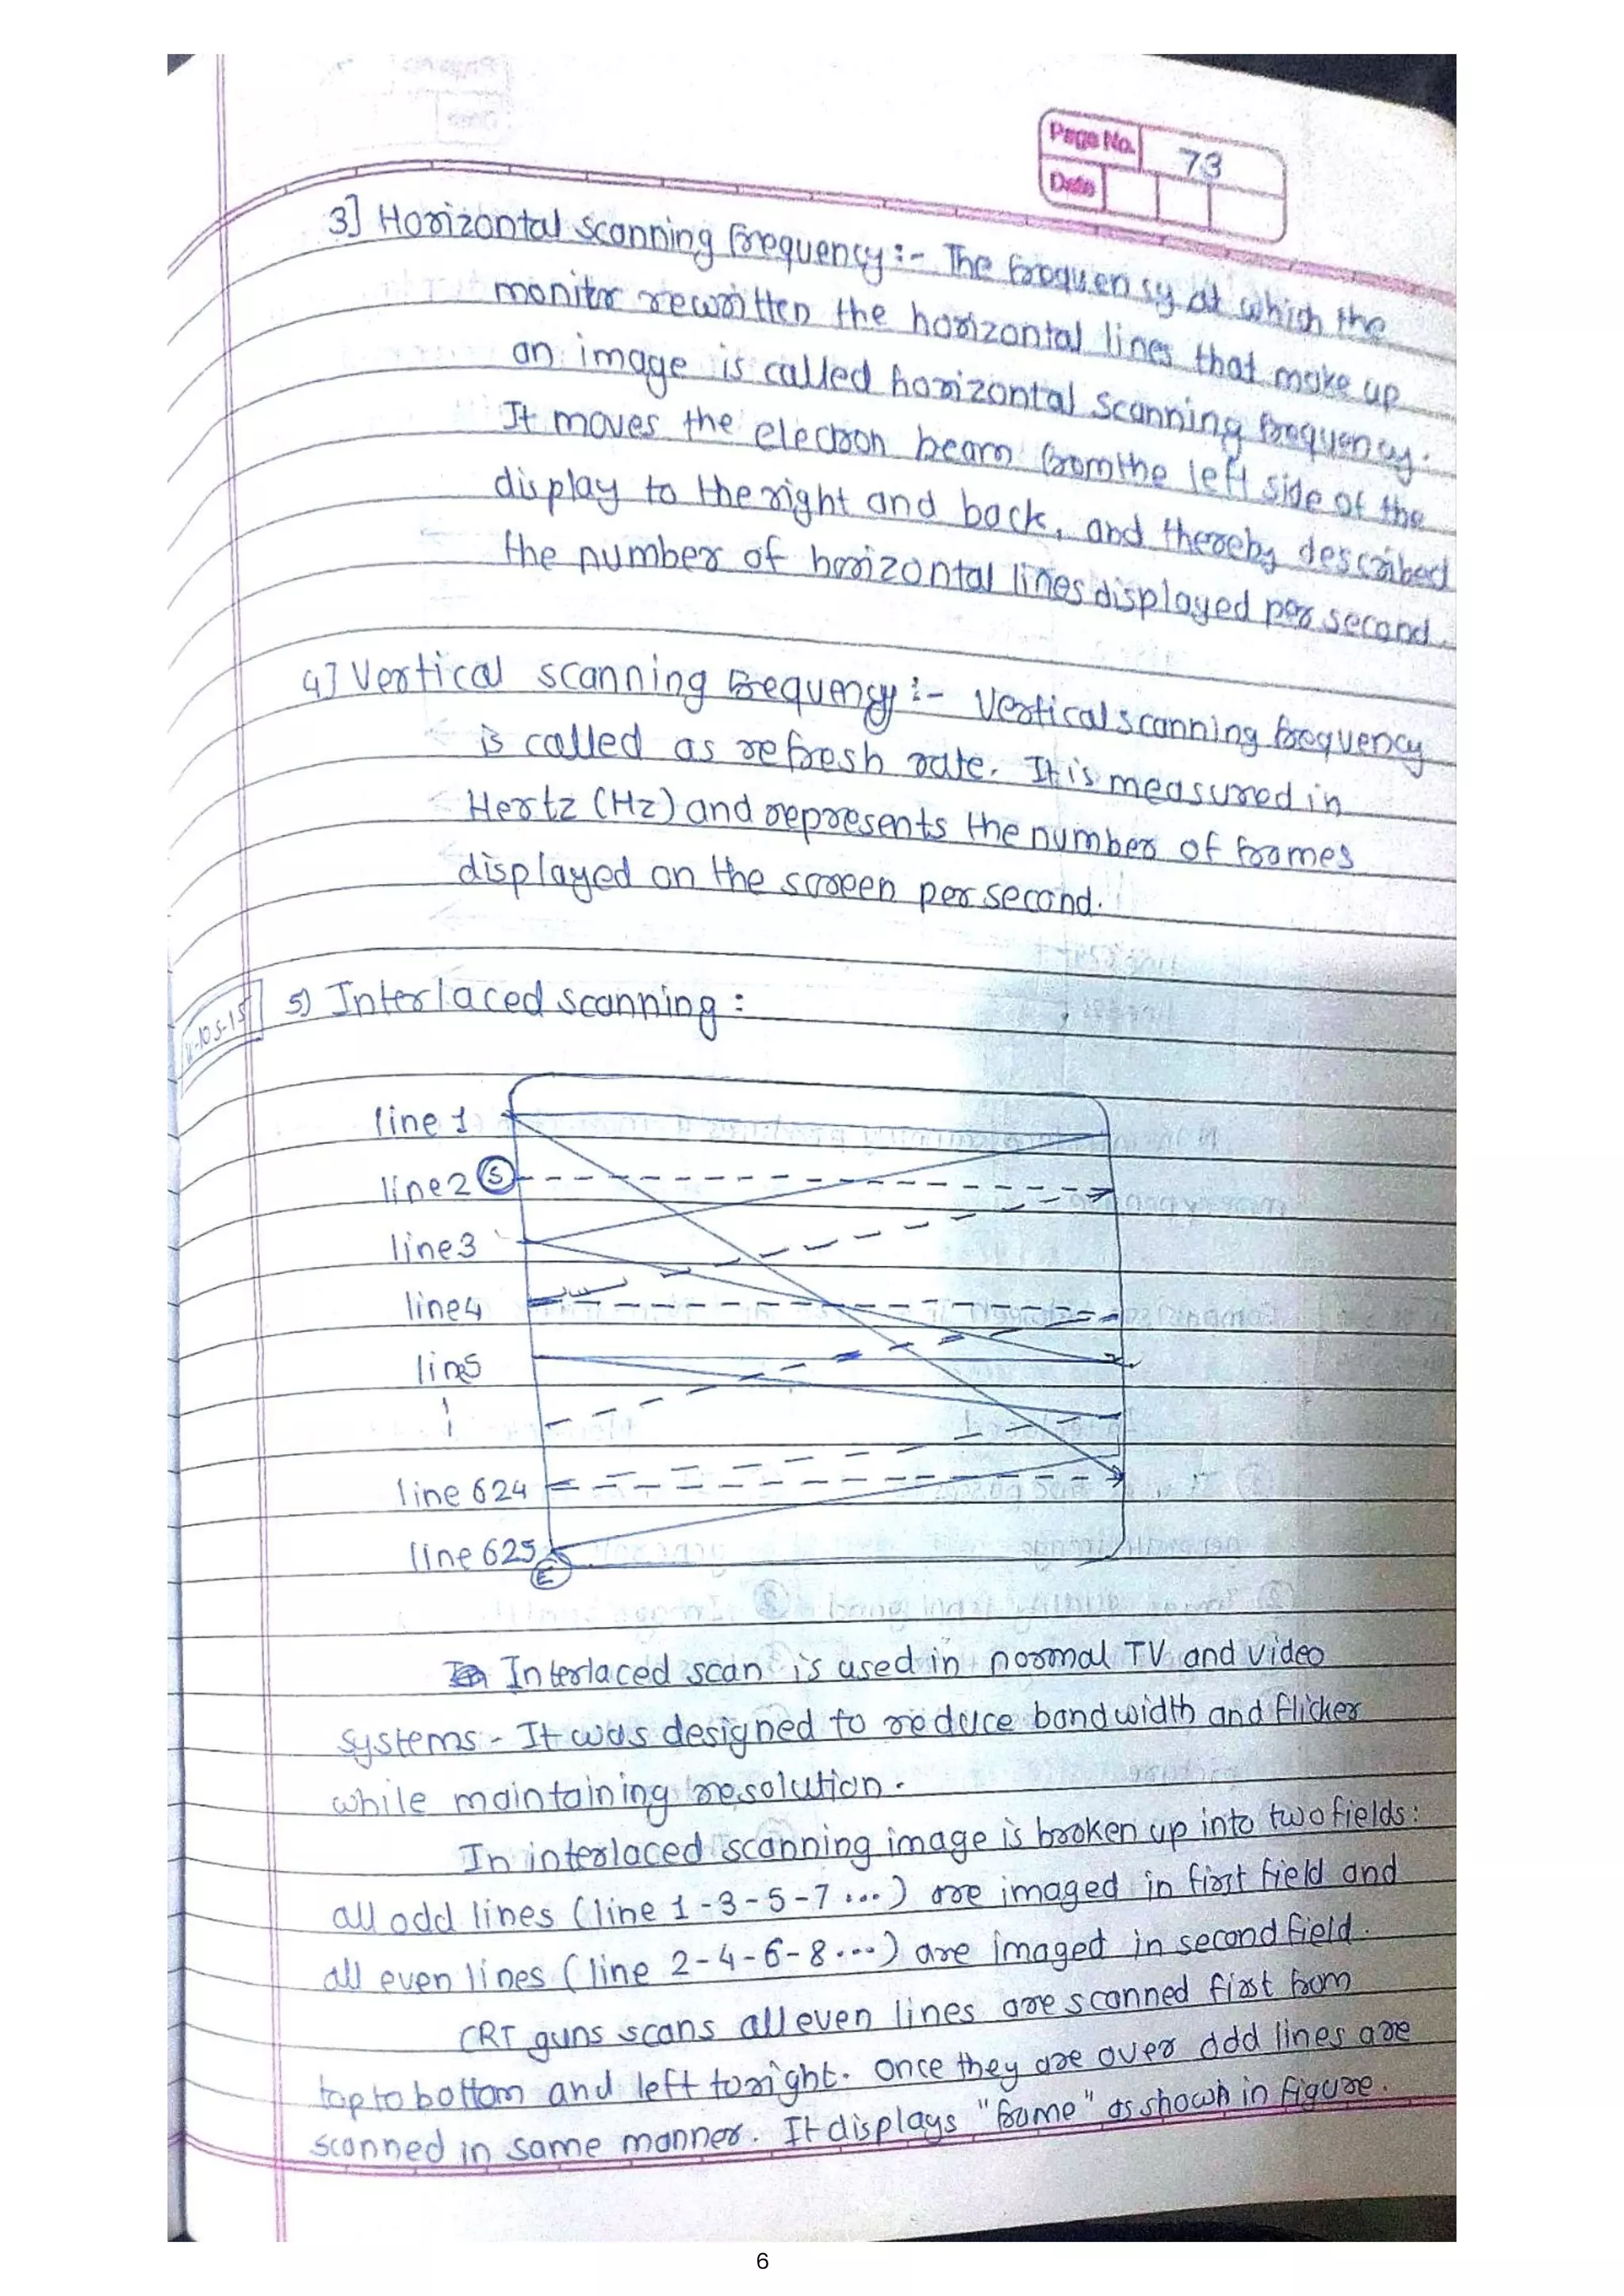 Page No. 73
Date
3] Horizontal scanning frequency :- The frequensy at which the
monitor rewritten the horizontal lines that make up
an image is called horizontal scanning frequency.
It moves the elecron beam from the left side of the
display to the right and back, and thereby described
the number of horizontal lines displayed per second.
4] Vertical scanning Frequency :- Vertical scanning frequency
is called as refresh rate. It is measured in
Hertz (Hz) and represents the number of frames
displayed on the screen per second.
5) Interlaced scanning :
line 1
line2 S
line3
line4
lin5
line 624
line 625
E
Interlaced scan is used in normal TV and video
systems - It was designed to reduce bandwidth and flicker
while maintaining resolution.
In interlaced scanning image is broken up into two fields:
all odd lines (line 1-3-5-7 ...) are imaged in first field and
all even lines (line 2-4-6-8 ...) are imaged in second field.
CRT guns scans all even lines are scanned first from
top to bottom and left to right. Once they are over odd lines are
scanned in same manner. It displays "frame" as shown in figure.
6